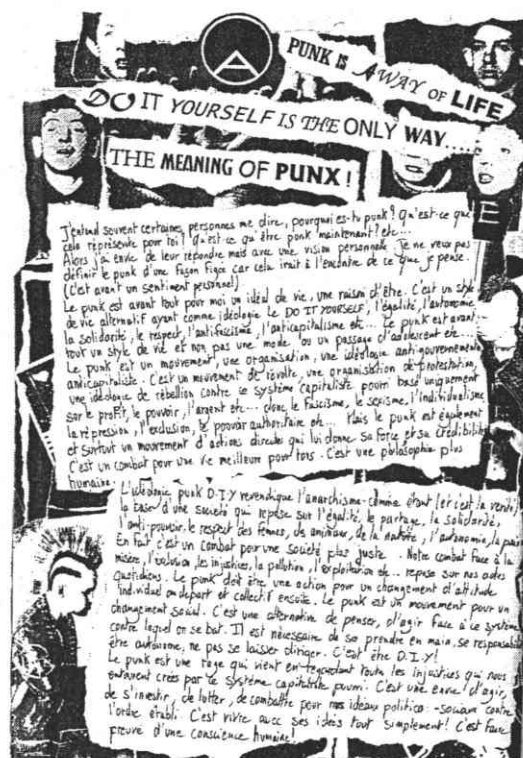 A
PUNK IS A WAY OF LIFE
DO IT YOURSELF IS THE ONLY WAY.....
THE MEANING OF PUNX !
J'entend souvent certaines personnes me dire, pourquoi es-tu punk ? Qu'est-ce que
cela représente pour toi ? Qu'est-ce qu'être punk maintenant ? etc...
Alors j'ai envie de leur répondre mais avec une vision personnelle. Je ne veux pas
définir le punk d'une façon figée car cela irait à l'encontre de ce que je pense.
(C'est avant un sentiment personnel).
Le punk est avant tout pour moi un idéal de vie, une raison d'être. C'est un style
de vie alternatif ayant comme idéologie le DO IT YOURSELF, l'égalité, l'autonomie,
la solidarité, le respect, l'antifascisme, l'anticapitalisme etc... Le punk est avant
tout un style de vie et non pas une mode ou un passage d'adolescent etc...
Le punk est un mouvement, une organisation, une idéologie antigouvernementale,
anticapitaliste. C'est un mouvement de révolte, une organisation de protestation,
une idéologie de rébellion contre ce système capitaliste pourri basé uniquement
sur le profit, le pouvoir, l'argent etc... donc le fascisme, le sexisme, l'individualisme
la répression, l'exclusion, le pouvoir authoritaire etc... Mais le punk est également
et surtout un mouvement d'actions directes qui lui donne sa force et sa crédibilité
C'est un combat pour une vie meilleure pour tous. C'est une philosophie plus
humaine.
L'idéologie punk D.I.Y revendique l'anarchisme comme étant (et c'est la vérité)
la base d'une société qui repose sur l'égalité, le partage, la solidarité,
l'anti-pouvoir, le respect des femmes, des animaux, de la nature, l'autonomie, la paix
En fait c'est un combat pour une société plus juste. Notre combat face à la
misère, l'exclusion, les injustices, la pollution, l'exploitation etc... repose sur nos actes
quotidiens. Le punk doit être une action pour un changement d'attitude
individuel au départ et collectif ensuite. Le punk est un mouvement pour un
changement social. C'est une alternative de penser, d'agir face à ce système
contre lequel on se bat. Il est nécessaire de se prendre en main, se responsabiliser
être autonome, ne pas se laisser diriger. C'est être D.I.Y !
Le punk est une rage qui vient en regardant toutes les injustices qui nous
entourent crées par ce système capitaliste pourri. C'est une envie d'agir,
de s'investir, de lutter, de combattre pour nos idéaux politico-sociaux contre
l'ordre établi. C'est vivre avec ses idées tout simplement ! C'est faire
preuve d'une conscience humaine !